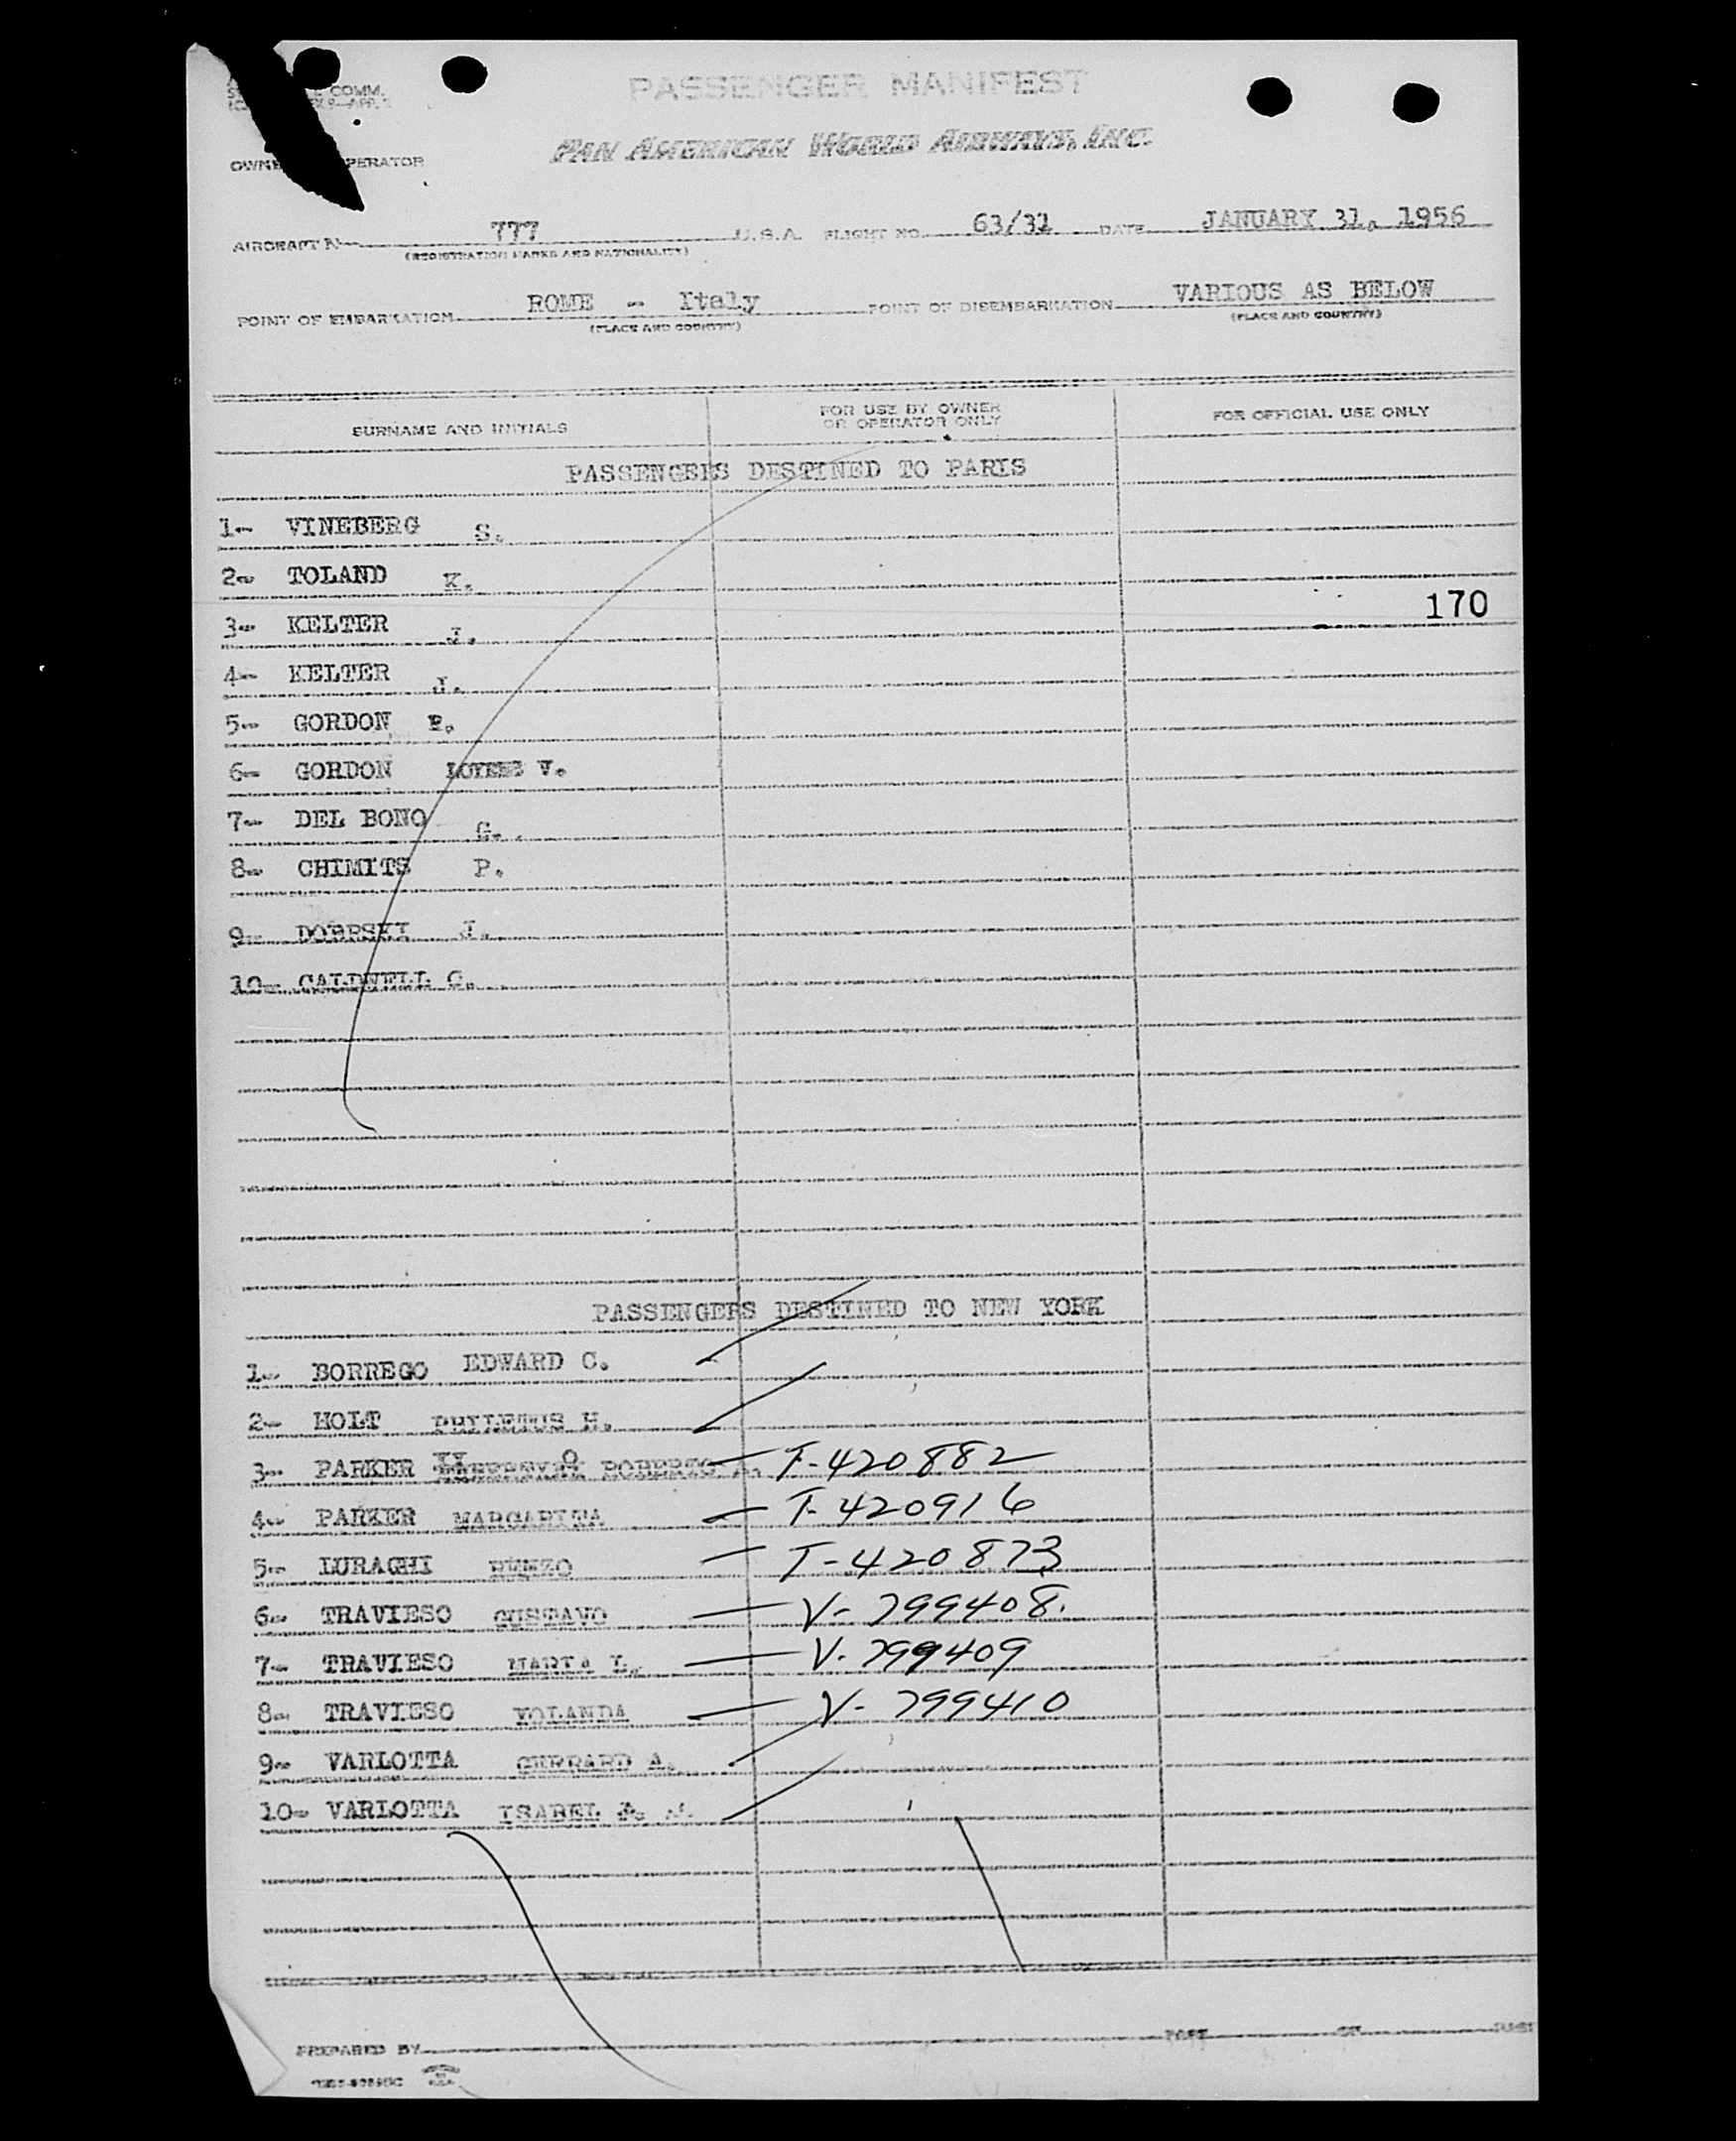 COMM.
OPERATOR
PASSENGER MANIFEST
PAN AMERICAN WORLD AIRWAYS, INC.
AIRCRAFT 777 U.S.A. FLIGHT NO. 63/31 DATE JANUARY 31, 1956
(REGISTRATION MARKS AND NATIONALITY)
POINT OF EMBARKATION ROME - Italy POINT OF DISEMBARKATION VARIOUS AS BELOW
(PLACE AND COUNTRY) (PLACE AND COUNTRY)
SURNAME AND INITIALS FOR USE BY OWNER OR OPERATOR ONLY FOR OFFICIAL USE ONLY
PASSENGERS DESTINED TO PARIS
1- VINEBERG S.
2- TOLAND K.
3- KELTER J.
170
4- KELTER J.
5- GORDON
6- GORDON V.
7- DEL BONO G.
8- CHIMITS P.
9- J.
10- CALDWELL C.
PASSENGERS DESTINED TO NEW YORK
1- BORREGO EDWARD C.
2- HOLT PHILETUS H.
3- PARKER ROBERTO A. T-420882
4- PARKER MARGARITA T-420916
5- LURAGHI RENZO T-420873
6- TRAVIESO GUSTAVO V-799408.
7- TRAVIESO MARTA L. V-799409
8- TRAVIESO YOLANDA V-799410
9- VARLOTTA GERRARD A.
10- VARLOTTA ISABEL
PREPARED BY PAGE OF